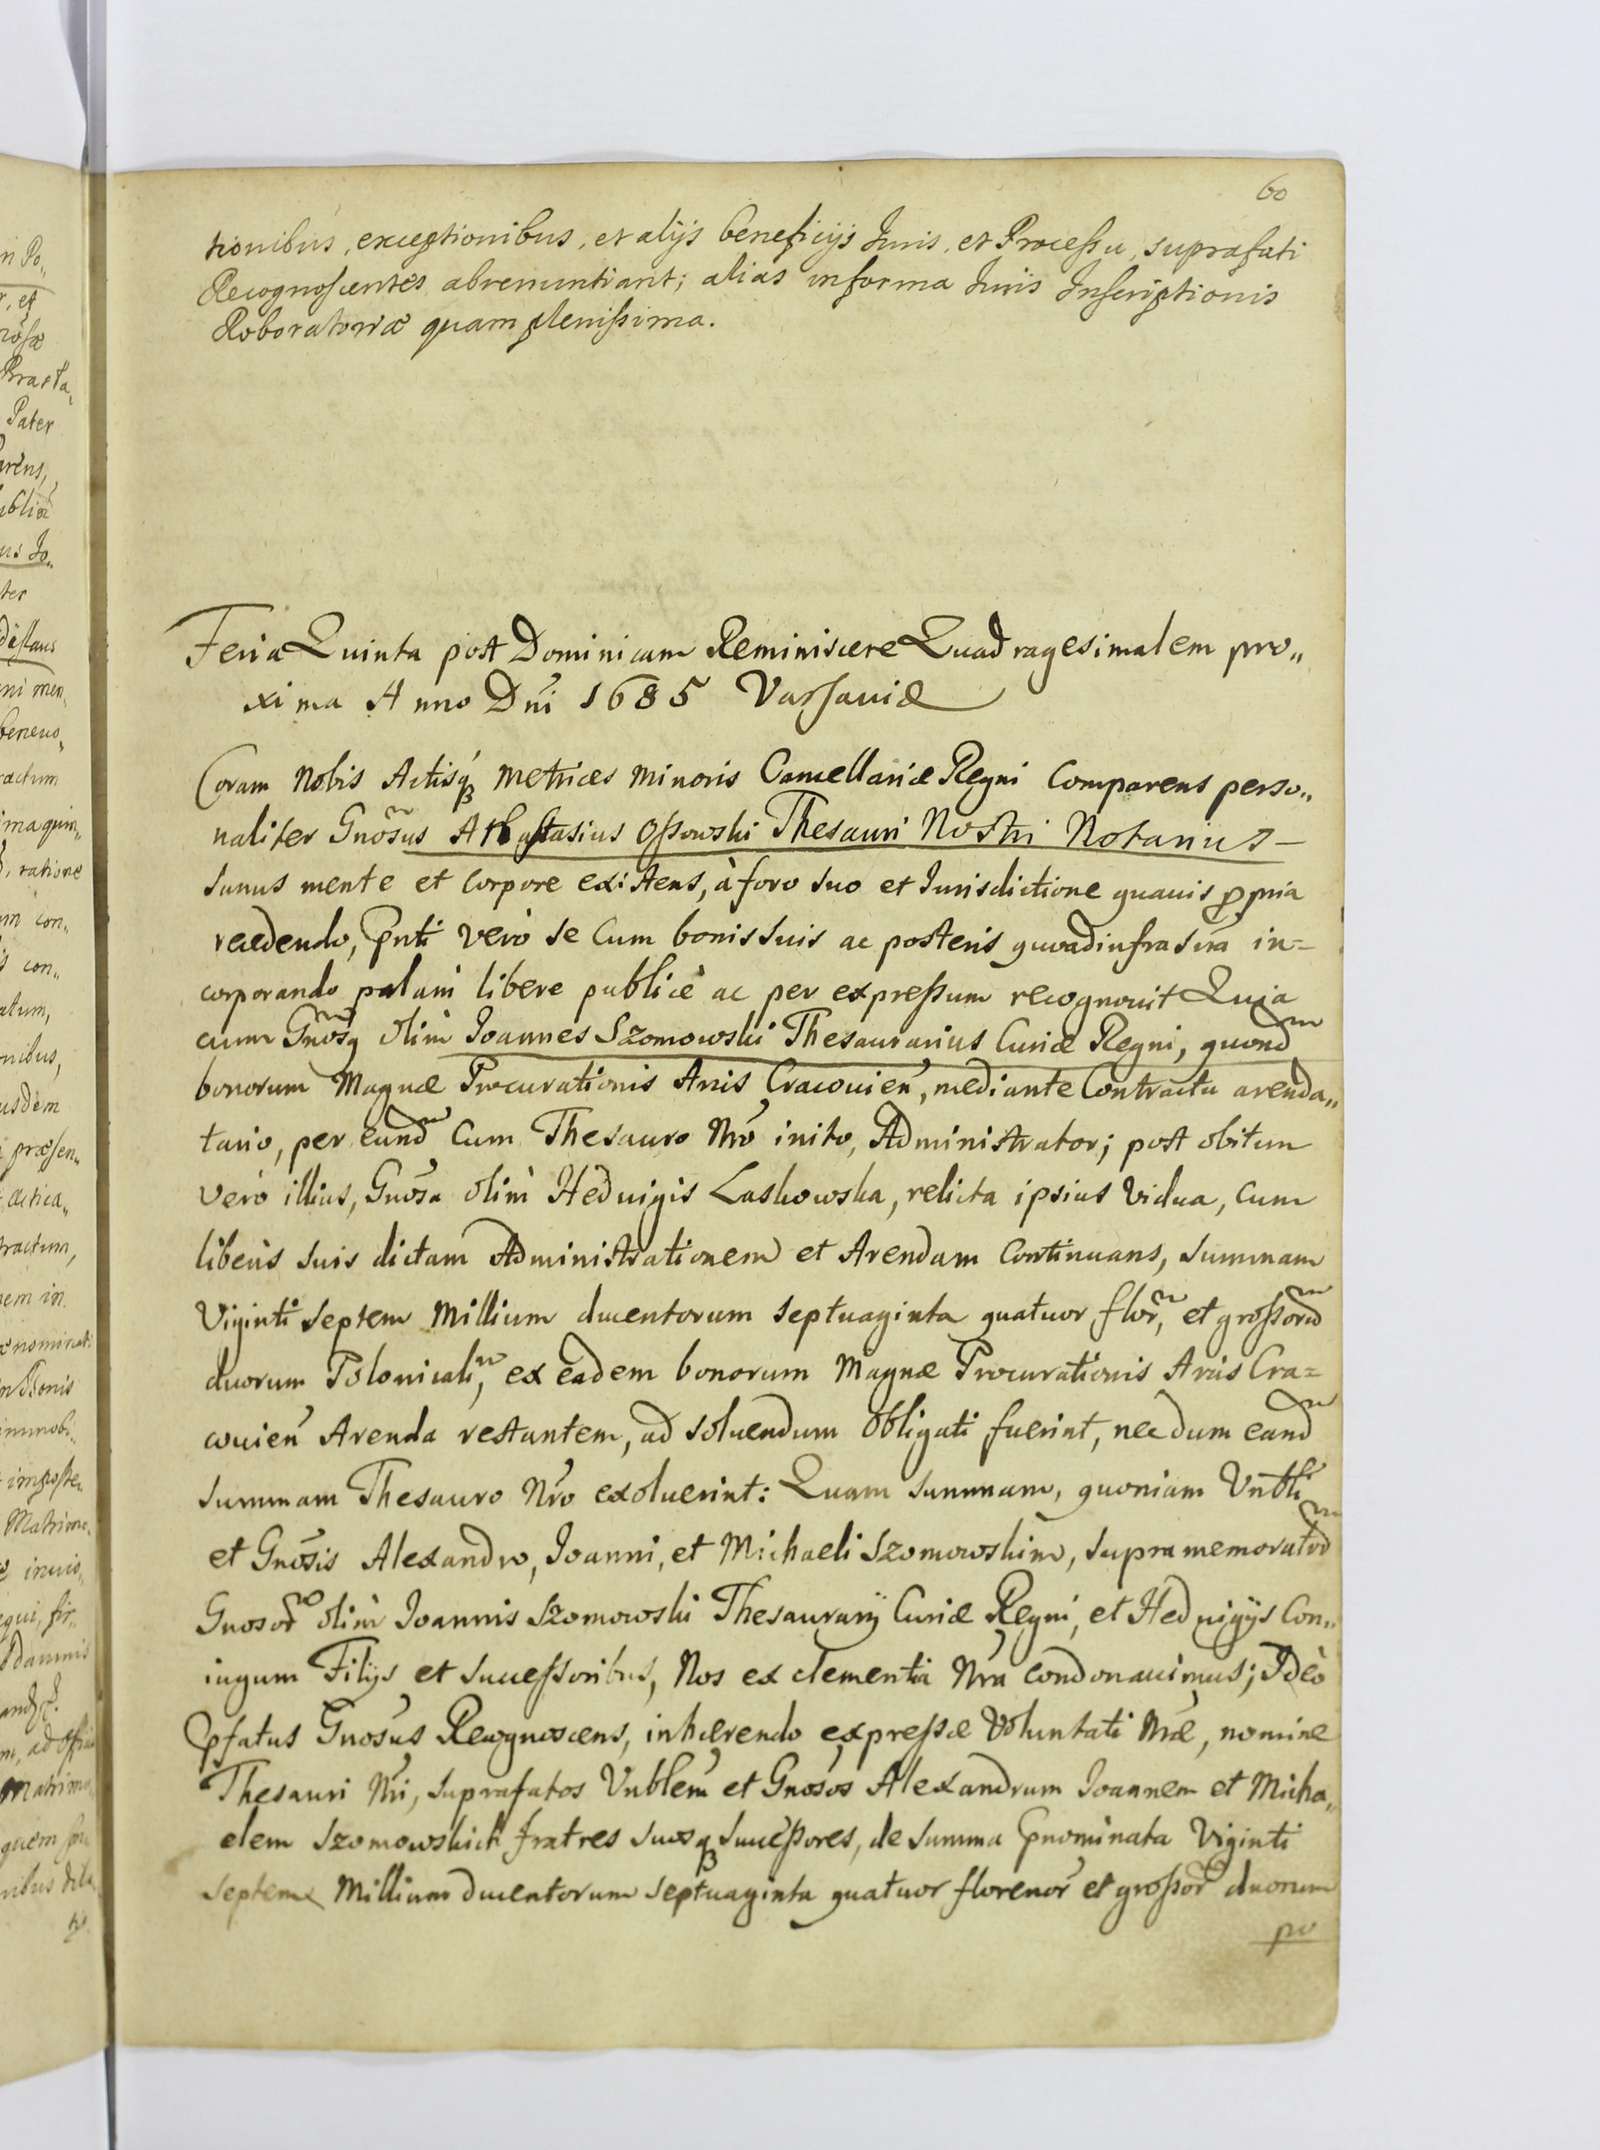 60
tionibus, exceptionibus, et alijs beneficijs Juris, et Processu, suprafati
Recognoscentes abrenuntiant; alias in forma Juris Inscriptionis
Roboratoriæ quam plenissima.
Feria Quinta post Dominicam Reminiscere Quadragesimalem pro„
xima Anno Dni 1685 Varsaviæ
Coram Nobis Actisq Metrices Minoris Cancellariæ Regni Comparens perso„
naliter Gnosus Athastasius Ossowski Thesauri Nostri Notarius –
Sanus mente et Corpore existens, à foro suo et Jurisdictione quavis ppria
recedendo, pnti verò se cum bonis suis ac posteris quoad infra scta in=
corporando palam libere publicè ac per expressum recognovit Quia
cum Gnosq olim Joannes Szomowski Thesaurarius Curiæ Regni, quond
bonorum Magnæ Procurationis Arcis Cracovien, mediante Contractu arenda„
tario, per eund cum Thesauro Nro inito, Administrator; post obitum
verò illius, Gnosa olim Hedvigis Laskowska, relicta ipsius Vidua, cum
liberis suis dictam Administrationem et Arendam Continuans, summam
Viginti septem Millium ducentorum septuaginta quatuor flor, et grossord
duorum Polonicali, ex eadem bonorum Magnæ Procurationis Arcis Cra=
covien Arenda restantem, ad solvendum obligati fuerint, necdum eand
summam Thesauro Nro exolverint: Quam summam, quoniam Vnbli
et Gnosis Alexandro, Joanni, et Michaeli Szomowskim, supra memorator
Gnosor olim Joannis Szomowski Thesaurarij Curiæ Regni, et Hedvigijs Con„
iugum Filijs et Successoribus, Nos ex clementia Nra condonavimus; Ideò
Pfatus Gnosus Recognoscens, inhærendo expressæ Voluntati Nræ, nomine
Thesauri Nri, suprafatos Vnblem et Gnosos Alexandrum Joannem et Micha„
elem Szomowskich fratres suosq successores, de summa pnominata Viginti
septem Millium ducentorum septuaginta quatuor florenor et grossor duorum
po